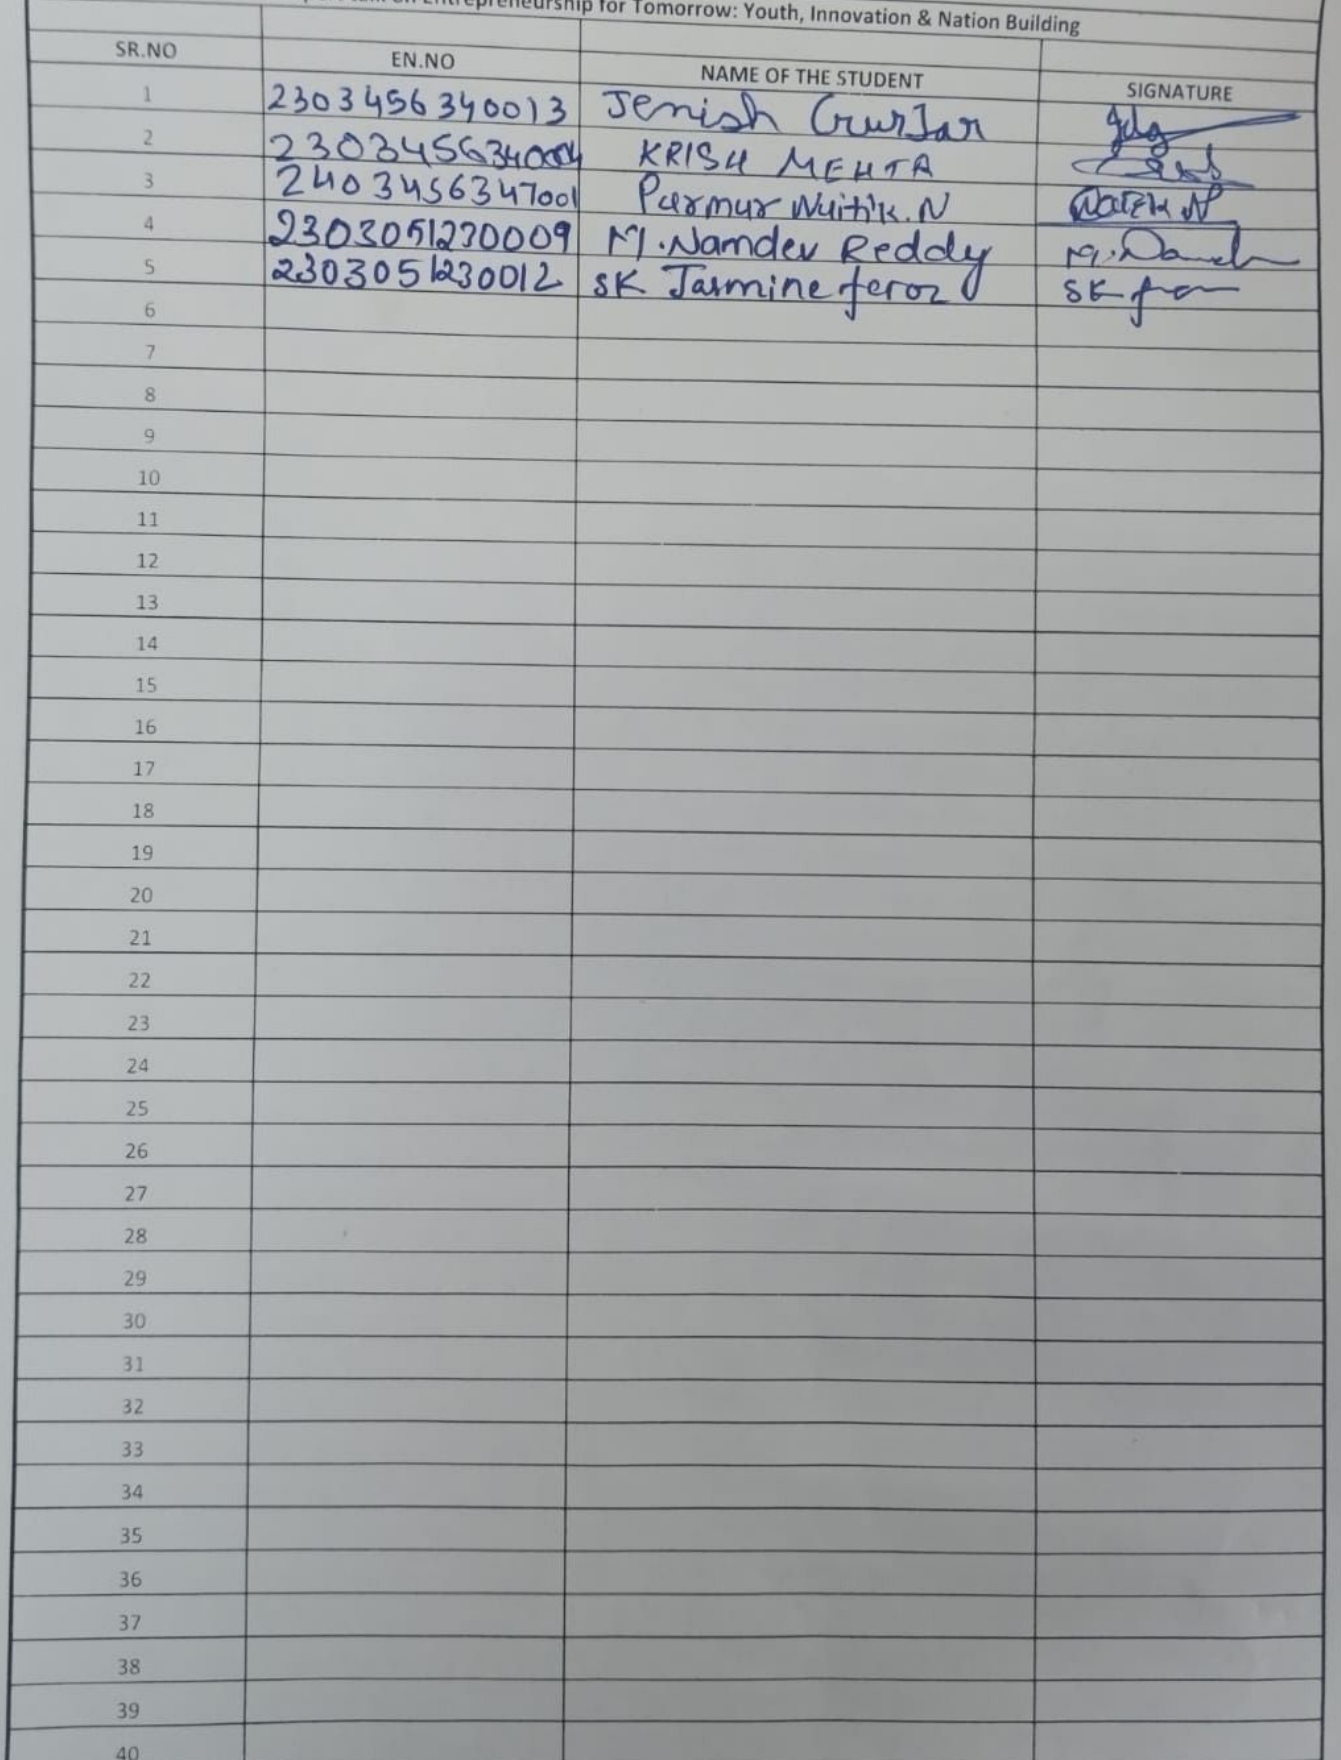 Entrepreneurship for Tomorrow: Youth, Innovation & Nation Building
SR.NO EN.NO NAME OF THE STUDENT SIGNATURE
1 2303456340013 Jenish GurJar
2 KRISH MEHTA
3 2403456347001 Parmar Naitik.N
4 2303051230009 M.Namdev Reddy
5 2303051230012 SK Jasmine feroz SK
6
7
8
9
10
11
12
13
14
15
16
17
18
19
20
21
22
23
24
25
26
27
28
29
30
31
32
33
34
35
36
37
38
39
40